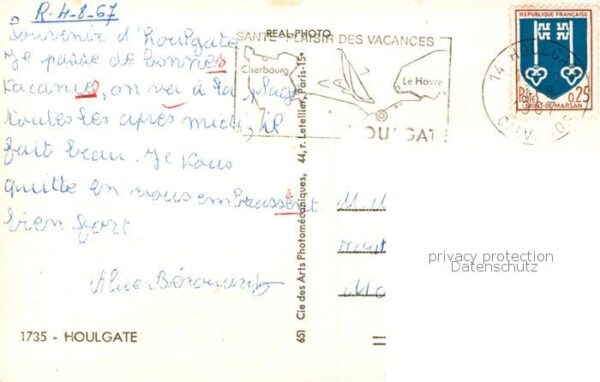 R- 4-8-67
Souvenir d'houlgate
Je passe de bonnes
vacances, on va à la plage
toutes les après midi, il
fait beau. Je vous
quitte en vous embrassent
bien fort
1735 - HOULGATE
REAL-PHOTO
65) Cie des Arts Photomécaniques, 44, r. Letellier, Paris-15e
SANTÉ PLAISIR DES VACANCES
Cherbourg
Le Havre
HOULGATE
14 HOULGATE
CALVADOS
REPUBLIQUE FRANÇAISE
Postes
0,25
MONT-DE-MARSAN
privacy protection
Datenschutz